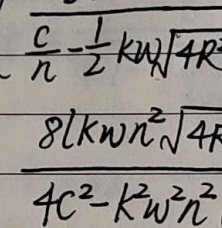 c/n - 1/2 kw√4R²
8lkwn²√4R
4c² - k²w²n²